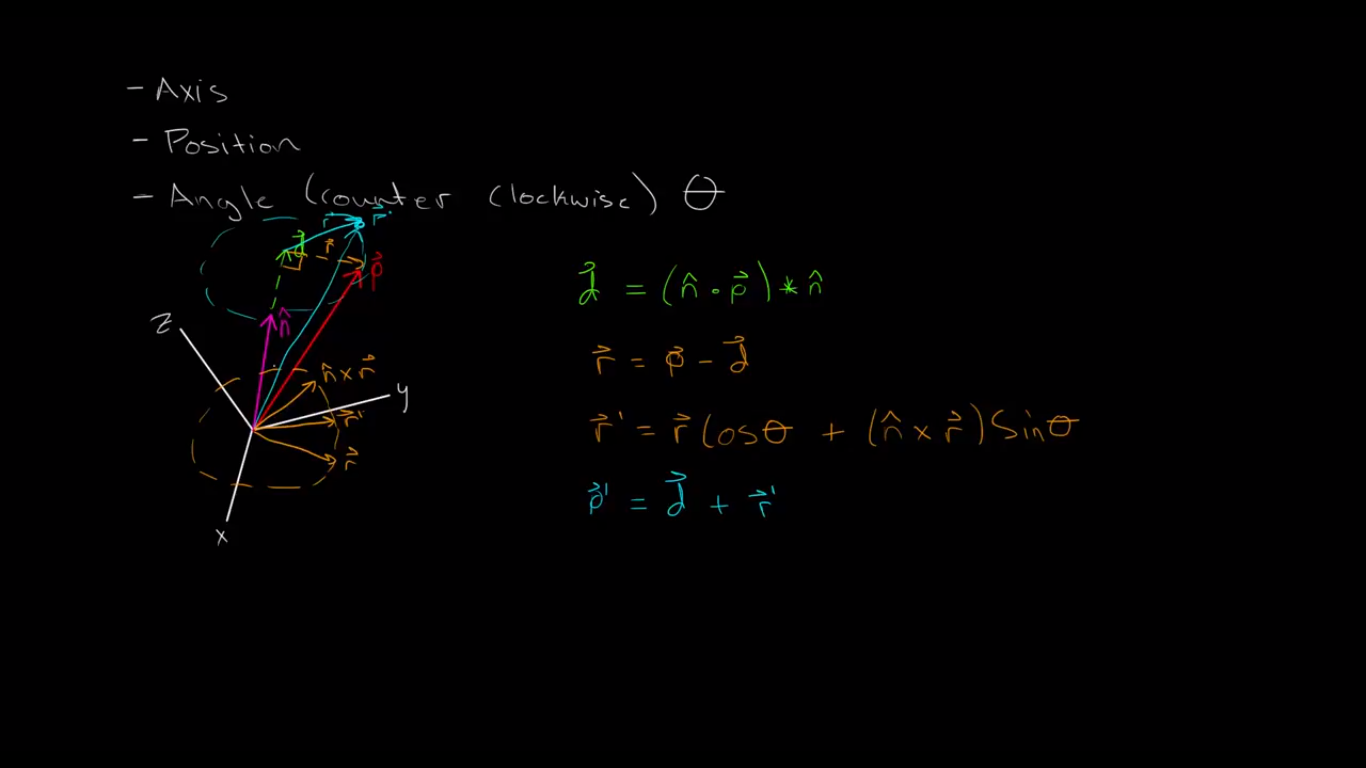 - Axis
- Position
- Angle (counter clockwise) θ
r⃗' p⃗'
d⃗ r⃗
p⃗
n̂
z
n̂ × r⃗
y
r⃗'
r⃗
x
d⃗ = (n̂ · p⃗) * n̂
r⃗ = p⃗ - d⃗
r⃗' = r⃗ Cosθ + (n̂ × r⃗) Sinθ
p⃗' = d⃗ + r⃗'